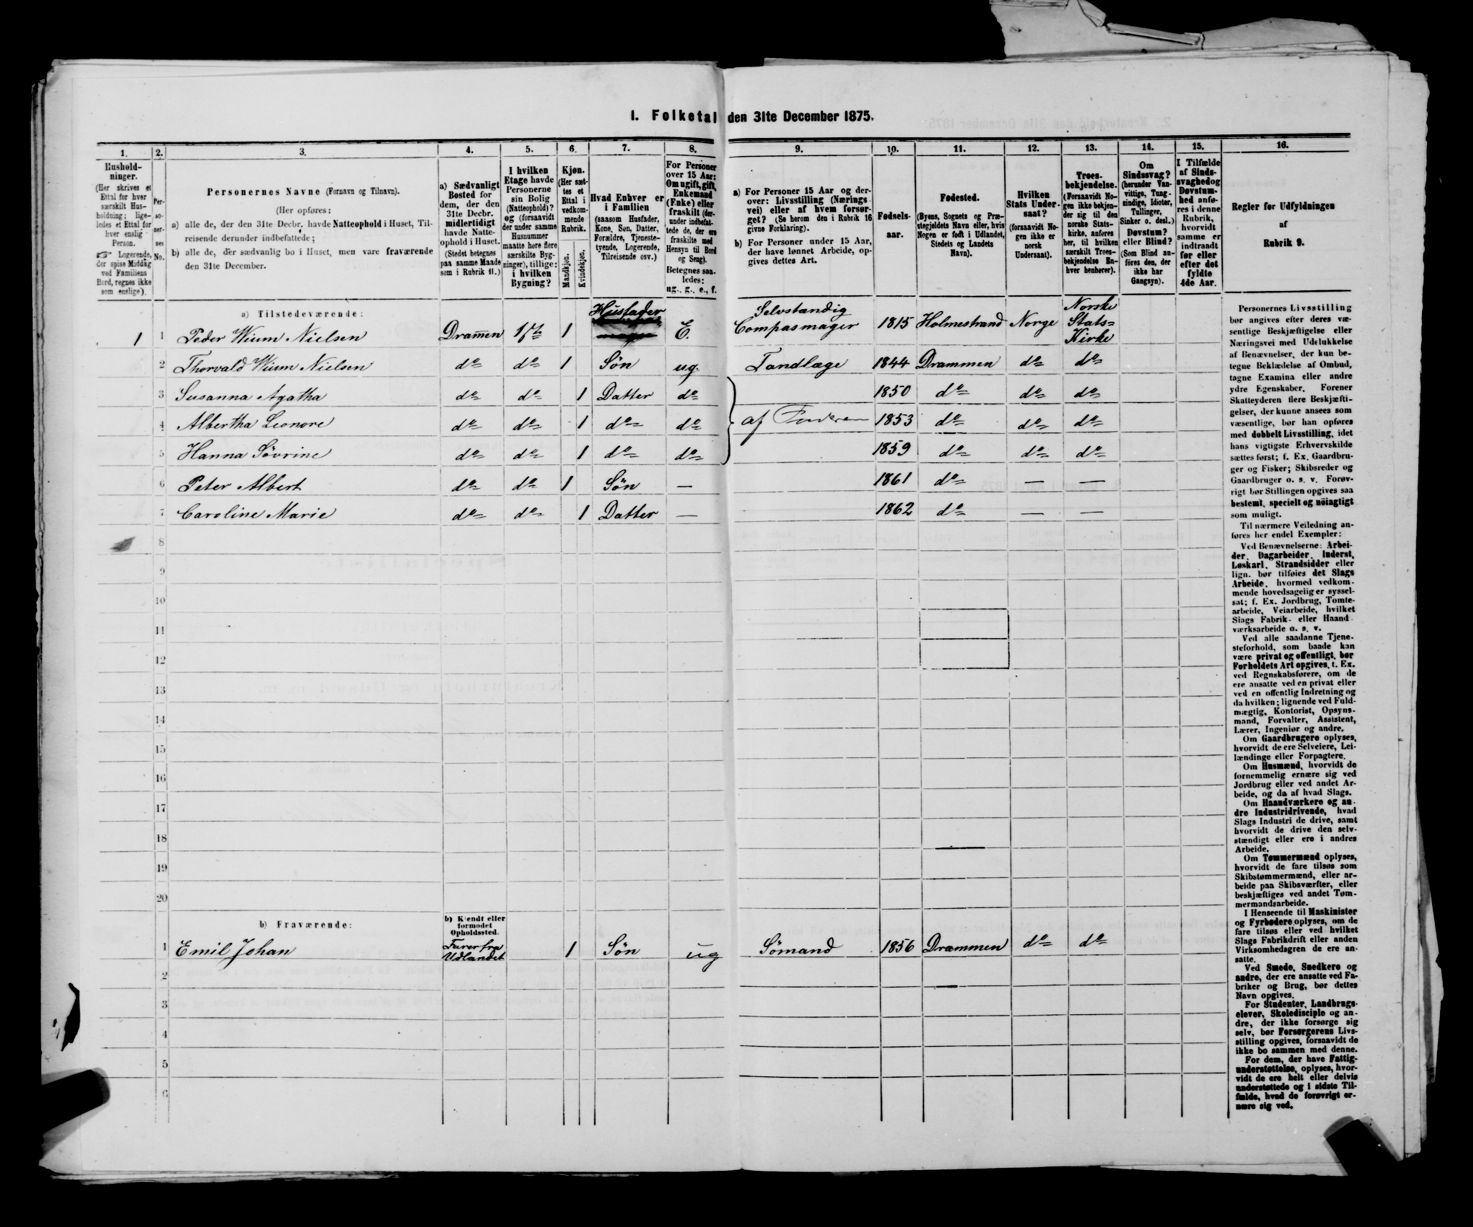 I. Folketal den 31te December 1875.
1. 2. 3. 4. 5. 6. 7. 8. 9. 10. 11. 12. 13. 14. 15. 16.
Hushold-
ninger.
(Her skrives et
Ettal for hver
særskilt Hus-
holdning; lige-
ledes et Ettal for
hver enslig
Person.
☞ Logerende,
der spise Middag
ved Familiens
Bord, regnes ikke
som enslige).
Per-
so-
ner-
nes
No.
Personernes Navne (Fornavn og Tilnavn).
(Her opføres:
a) alle de, der den 31te Decbr. havde Natteophold i Huset, Til-
reisende derunder indbefattede;
b) alle de, der sædvanlig bo i Huset, men vare fraværende
den 31te December.
a) Sædvanligt
Bosted for
dem, der den
31te Decbr.
midlertidigt
havde Natte-
ophold i Huset.
(Stedet betegnes
paa samme Maade
som i Rubrik 11.)
I hvilken
Etage havde
Personerne
sin Bolig
(Natteophold)?
og (forsaavidt
der under samme
Husnummer
maatte høre flere
særskilte Byg-
ninger), tillige:
i hvilken
Bygning?
Kjøn.
(Her sæt-
tes et
Ettal i
vedkom-
mende
Rubrik.
Mandkjøn.
Kvindekjøn.
Hvad Enhver er
i Familien
(saasom Husfader,
Kone, Søn, Datter,
Forældre, Tjeneste-
tyende, Logerende,
Tilreisende osv.)
For Personer
over 15 Aar:
Om ugift, gift,
Enkemand
(Enke) eller
fraskilt (der-
under indbefat-
tede de, der ere
fraskilte med
Hensyn til Bord
og Seng).
Betegnes saa-
ledes:
ug., g., e., f.
a) For Personer 15 Aar og der-
over: Livsstilling (Nærings-
vei) eller af hvem forsør-
get? (Se herom den i Rubrik 16
givne Forklaring).
b) For Personer under 15 Aar,
der have lønnet Arbeide, op-
gives dettes Art.
Fødsels-
aar.
Fødested.
(Byens, Sognets og Præ-
stegjeldets Navn eller, hvis
Nogen er født i Udlandet,
Stedets og Landets
Navn).
Hvilken
Stats Under-
saat?
(forsaavidt No-
gen ikke er
norsk
Undersaat).
Troes-
bekjendelse.
(Forsaavidt No-
gen ikke bekjen-
der sig til den
norske Stats-
kirke, anføres
her, til hvilken
særskilt Troes-
bekjendelse En-
hver henhører).
Om
Sindssvag?
(herunder Van-
vittige, Tung-
sindige, Idioter,
Tullinger,
Sinker o. desl.)
Døvstum?
eller Blind?
(Som Blind an-
føres den, der
ikke har
Gangsyn).
I Tilfælde
af Sinds-
svaghed og
Døvstum-
hed anfø-
res i denne
Rubrik,
hvorvidt
samme er
indtraadt
før eller
efter det
fyldte
4de Aar.
Regler for Udfyldningen
af
Rubrik 9.
a) Tilstedeværende:
1 1 Peder Wium Nielsen Drammen 1ste 1 Husfader E. Selvstændig Compasmager 1815 Holmestrand Norge Norske Stats= Kirke
2 Thorvald Wium Nielsen do do 1 Søn ug. Tandlæge 1844 Drammen do do
3 Susanna Agatha do do 1 Datter do 1850 do do do
4 Albertha Leonore do do 1 do do af Faderen 1853 do do do
5 Hanna Sövrine do do 1 do do 1859 do do do
6 Peter Albert do do 1 Søn — 1861 do — —
7 Caroline Marie do do 1 Datter — 1862 do — —
8
9
10
11
12
13
14
15
16
17
18
19
20
b) Fraværende:
b) Kjendt eller
formodet
Opholdssted.
1 Emil Johan Farer fra Udlandet 1 Søn ug Sømand 1856 Drammen do do
2
3
4
5
6
Personernes Livsstilling
bør angives efter deres væ-
sentlige Beskjæftigelse eller
Næringsvei med Udelukkelse
af Benævnelser, der kun be-
tegne Beklædelse af Ombud,
tagne Examina eller andre
ydre Egenskaber. Forener
Skatteyderen flere Beskjæfti-
gelser, der kunne ansees som
væsentlige, bør han opføres
med dobbelt Livsstilling, idet
hans vigtigste Erhvervskilde
sættes først; f. Ex. Gaardbru-
ger og Fisker; Skibsreder og
Gaardbruger o. s. v. Forøv-
rigt bør Stillingen opgives saa
bestemt, specielt og nøiagtigt
som muligt.
Til nærmere Veiledning an-
føres her endel Exempler:
Ved Benævnelserne: Arbei-
der, Dagarbeider, Inderst,
Løskarl, Strandsidder eller
lign. bør tilføies det Slags
Arbeide, hvormed vedkom-
mende hovedsagelig er syssel-
sat; f. Ex. Jordbrug, Tomte-
arbeide, Veiarbeide, hvilket
Slags Fabrik- eller Haand
værksarbeide o. s. v.
Ved alle saadanne Tjene-
steforhold, som baade kan
være privat og offentligt, bør
Forholdets Art opgives, t. Ex.
ved Regnskabsførere, om de
ere ansatte ved en privat eller
ved en offentlig Indretning og
da hvilken; lignende ved Fuld-
mægtig, Kontorist, Opsyns-
mand, Forvalter, Assistent,
Lærer, Ingeniør og andre.
Om Gaardbrugere oplyses,
hvorvidt de ere Selveiere, Lei-
lændinge eller Forpagtere.
Om Husmænd, hvorvidt de
fornemmelig ernære sig ved
Jordbrug eller ved andet Ar-
beide, og da af hvad Slags.
Om Haandværkere og an-
dre Industridrivende, hvad
Slags Industri de drive, samt
hvorvidt de drive den selv-
stændigt eller ere i andres
Arbeide.
Om Tømmermænd oplyses,
hvorvidt de fare tilsøs som
Skibstømmermænd, eller ar-
beide paa Skibsværfter, eller
beskjæftiges ved andet Tøm-
mermandsarbeide.
I Henseende til Maskinister
og Fyrbødere oplyses, om de
fare tilsøs eller ved hvilket
Slags Fabrikdrift eller anden
Virksomhedsgren de ere an-
satte.
Ved Smede, Snedkere og
andre, der ere ansatte ved Fa-
briker og Brug, bør dettes
Navn opgives.
For Studenter, Landbrugs-
elever, Skoledisciple og an-
dre, der ikke forsørge sig
selv, bør Forsørgerens Livs-
stilling opgives, forsaavidt de
ikke bo sammen med denne.
For dem, der have Fattig-
understøttelse, oplyses, hvor-
vidt de ere helt eller delvis
understøttede og i sidste Til-
fælde, hvad de forøvrigt er-
nære sig ved.